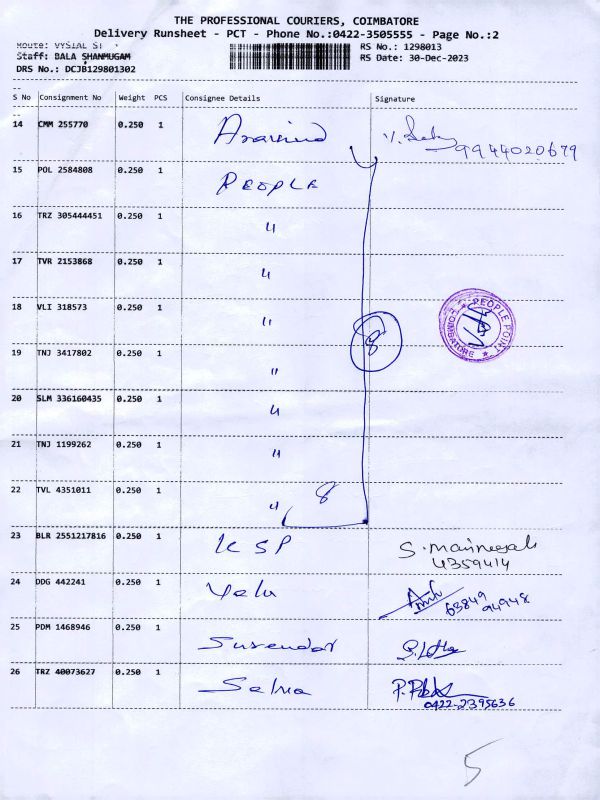 THE PROFESSIONAL COURIERS, COIMBATORE
Delivery Runsheet - PCT - Phone No.:0422-3505555 - Page No.:2
Route: VYSIAL ST
RS No.: 1298013
Staff: BALA SHANMUGAM
RS Date: 30-Dec-2023
DRS No.: DCJB129801302
S No Consignment No Weight PCS Consignee Details Signature
14 CMM 255770 0.250 1
9944020679
15 POL 2584808 0.250 1 PEOPLE
16 TRZ 305444451 0.250 1 "
17 TVR 2153868 0.250 1 "
18 VLI 318573 0.250 1 "
PEOPLE POINT
COIMBATORE
8
19 TNJ 3417802 0.250 1 "
20 SLM 336160435 0.250 1 "
21 TNJ 1199262 0.250 1 "
22 TVL 4351011 0.250 1 " 8
23 BLR 2551217816 0.250 1 KSP S.
4359414
24 DDG 442241 0.250 1 Velu
63849
94948
25 PDM 1468946 0.250 1 Surendar
26 TRZ 40073627 0.250 1 Selva
0422-2395636
5